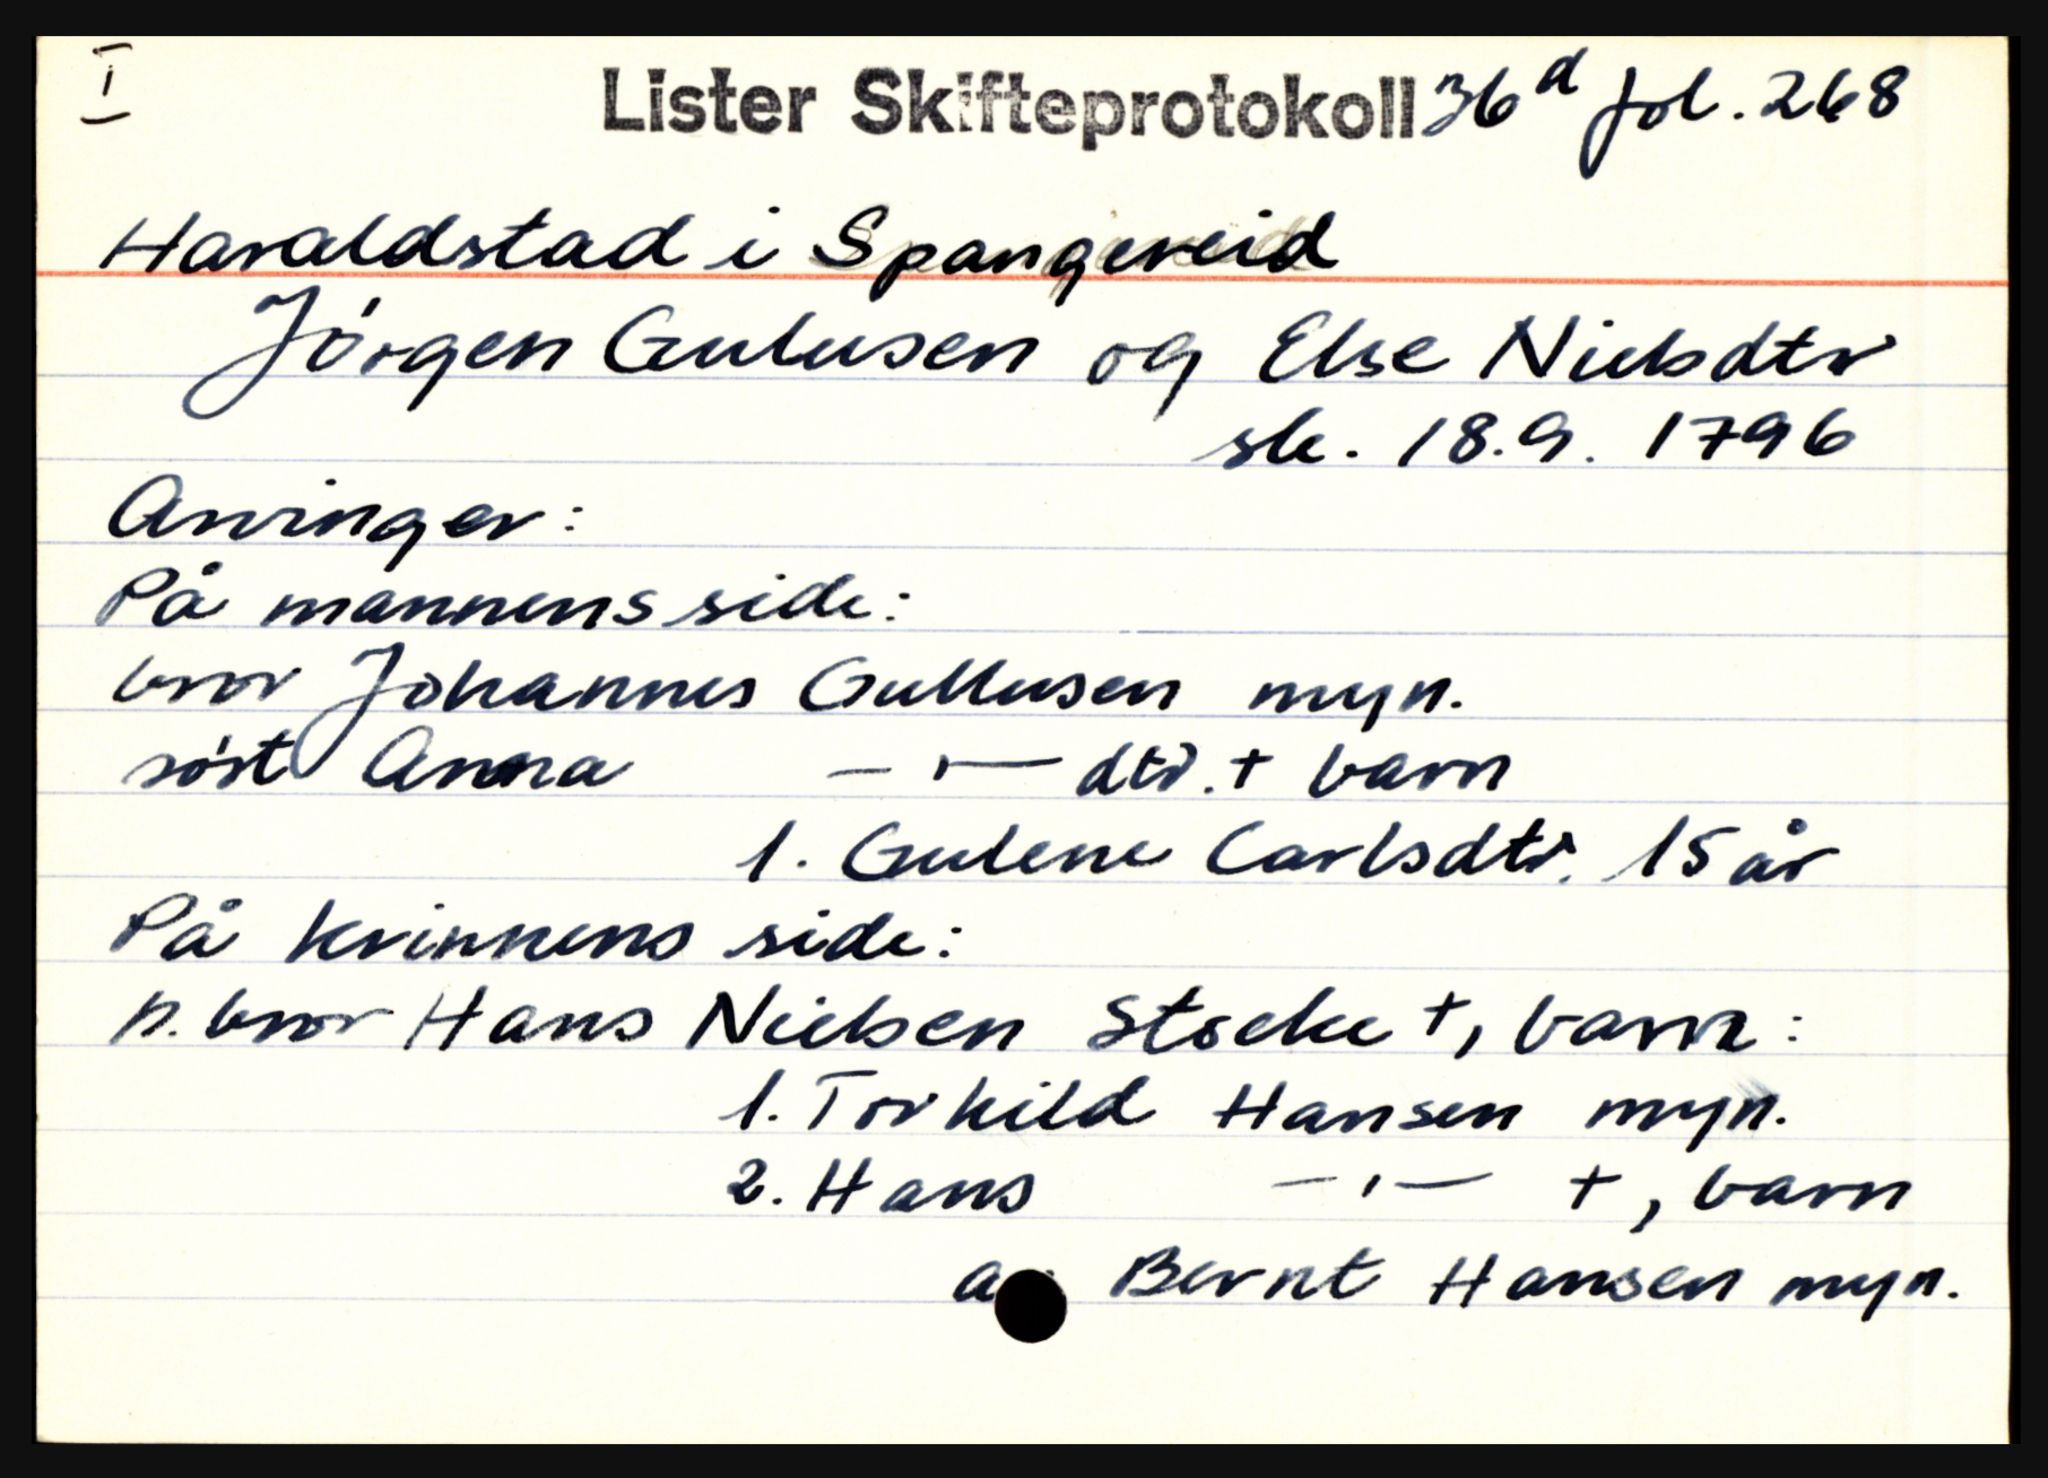 I
Lister Skifteprotokoll 36d fol. 268
Haraldstad i Spangereid
Jörgen Gulusen og Else Nielsdtr
sk. 18.9. 1796
Arvinger:
På mannens side:
bror Johannes Gullusen myn.
söst Anna —"— dtr. + barn
1. Gulene Carlsdtr. 15 år
På kvinnens side:
h. bror Hans Nielsen Stocke +, barn:
1. Torkild Hansen myn.
2. Hans —"— +, barn
a. Bernt Hansen myn.